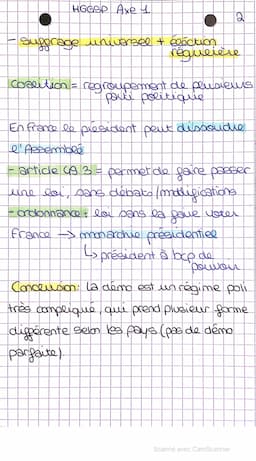 HGGSP Axe 1
2
- suffrage universel + élection
régulière
Coalition = regroupement de plusieurs
parti politique
En France le président peut dissoudre
l'Assemblé
- article 49.3 = permet de faire passer
une loi, sans débats/modifications
- ordonnance : loi sans la faire voter
France → monarchie présidentiel
↳ président à bcp de
pouvoir
Conclusion : La démo est un régime poli
très compliqué, qui prend plusieur forme
différente selon les pays (pas de démo
parfaite)
Scanné avec CamScanner